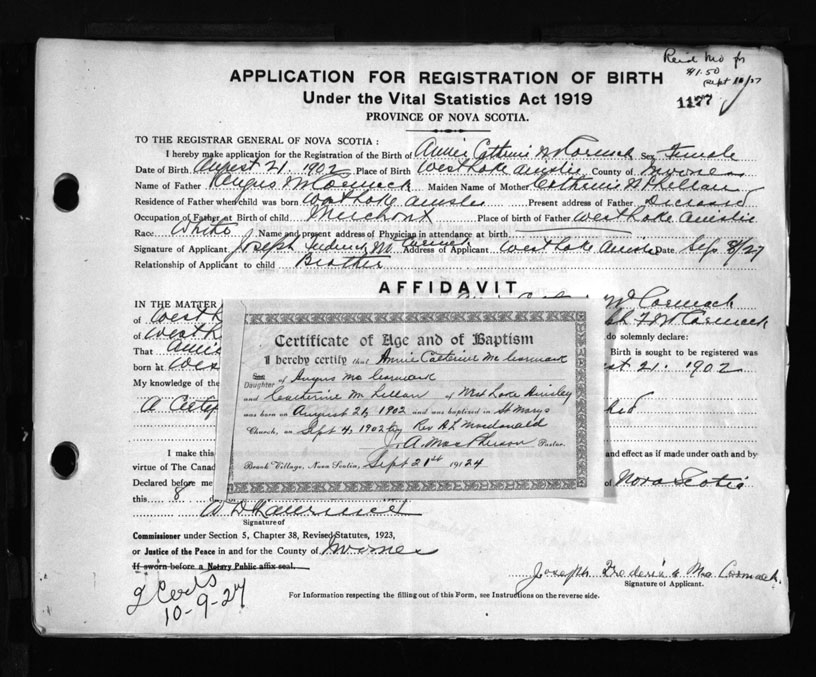 Reid
$1.50
Sept
1177
APPLICATION FOR REGISTRATION OF BIRTH
Under the Vital Statistics Act 1919
PROVINCE OF NOVA SCOTIA.
TO THE REGISTRAR GENERAL OF NOVA SCOTIA:
I hereby make application for the Registration of the Birth of Annie Catherine McCormack Sex Female
Date of Birth August 21. 1902 Place of Birth West Lake Ainslie County of Inverness
Name of Father Angus McCormack Maiden Name of Mother Catherine McLellan
Residence of Father when child was born West Lake Ainslie Present address of Father Deceased
Occupation of Father at Birth of child Merchant Place of birth of Father West Lake Ainslie
Race White Name and present address of Physician in attendance at birth
Signature of Applicant Joseph Frederick McCormack Address of Applicant West Lake Ainslie Date Sep 8/27
Relationship of Applicant to child Brother
AFFIDAVIT
IN THE MATTER McCormack
of West L
of West L F McCormack
do solemnly declare:
That Annie Birth is sought to be registered was
born at Wes st 21. 1902
My knowledge of the
A Certif
I make this and effect as if made under oath and by
virtue of The Canad
Declared before me of Nova Scotia
this 8
Signature of
Commissioner under Section 5, Chapter 38, Revised Statutes, 1923,
or Justice of the Peace in and for the County of Inverness
If sworn before a Notary Public affix seal.
Certificate of Age and of Baptism
I hereby certify that Annie Catherine Mc Cormack
Son
Daughter of Angus Mc Cormack
and Catherine McLellan of West Lake Ainsley
was born on August 21, 1902 and was baptized in St Marys
Church, on Sept 4, 1902 by Rev A L Macdonald
J. A. MacPherson Pastor.
Brook Village, Nova Scotia, Sept 21st 1924
Joseph Frederick McCormack.
Signature of Applicant.
10-9-27
For Information respecting the filling out of this Form, see Instructions on the reverse side.